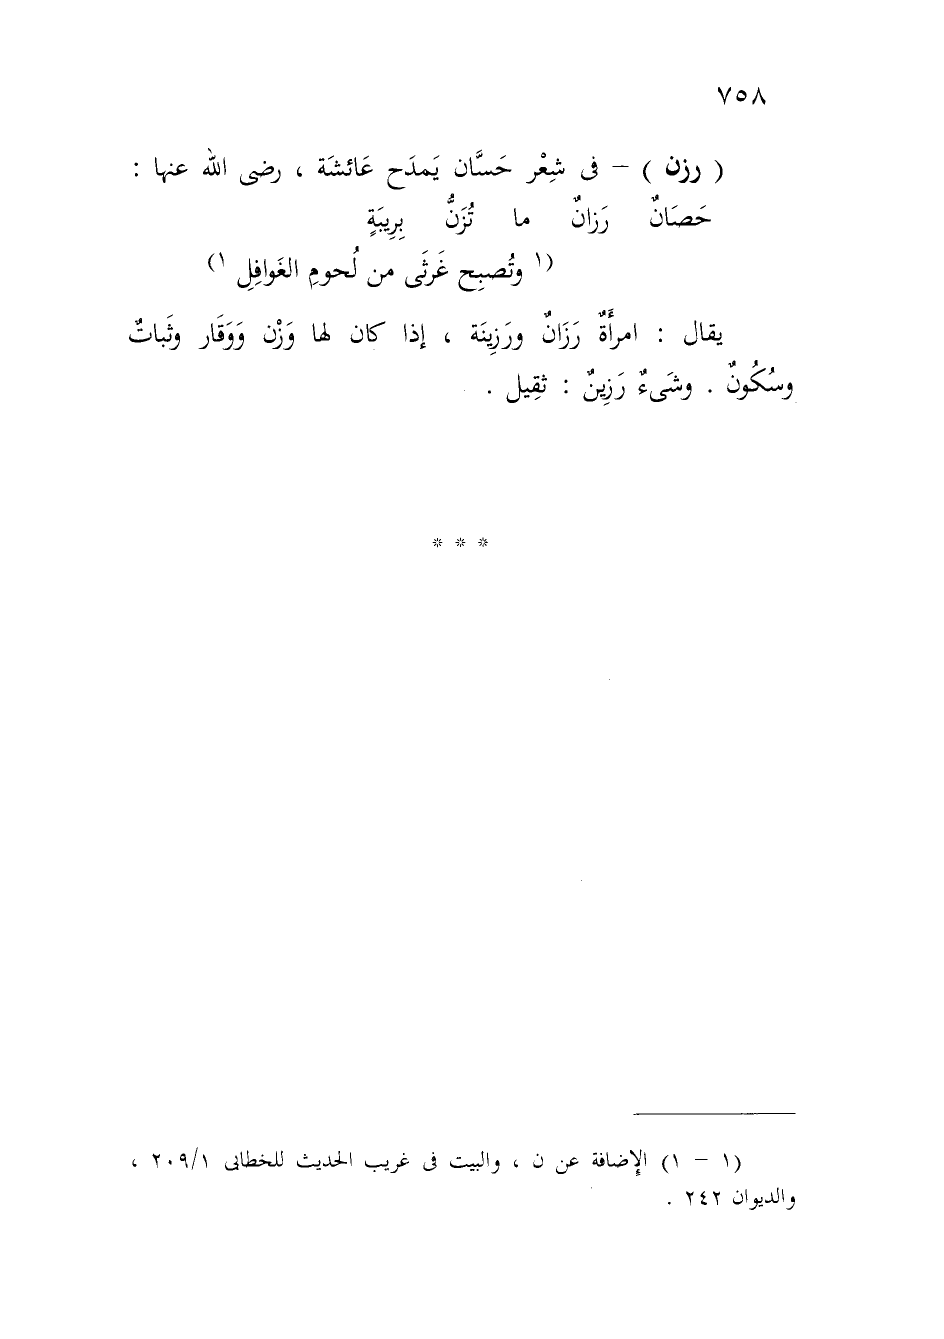 ٧٥٨
( رزن ) – فى شِعْر حَسَّان يَمدَح عَائشَة ، رضى الله عنها :
حَصَانٌ رَزانٌ ما تُزَنُّ بِرِيبَةٍ
(١ وتُصبِح غَرثَى من لُحومِ الغَوافِلِ ١)
يقال : امرأَةٌ رَزَانٌ ورَزِينَة ، إذا كان لها وَزْن وَوَقَار وثَباتٌ
وسُكُونٌ . وشَىءٌ رَزِينٌ : ثقِيل .
* * *
(١ – ١) الإضافة عن ن ، والبيت فى غريب الحديث للخطابى ٢٠٩/١ ،
والديوان ٢٤٢ .